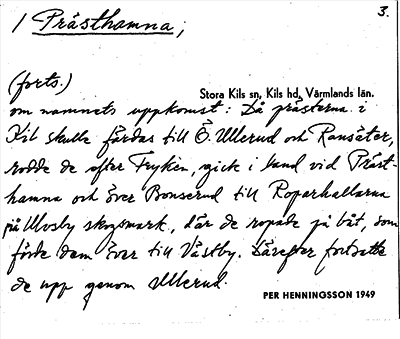 / Prästhamna; 3.
(forts.)
Stora Kils sn, Kils hd, Värmlands län.
om namnets uppkomst: Då prästerna i
Kil skulle färdas till Ö. Ullerud och Ransäter,
rodde de efter Fryken, gick i land vid Präst-
hamna och över Bonserud till Roparhallarna
på Ulvsby skogsmark, där de ropade på båt, som
förde dem över till Västby. Därefter fortsatte
de upp genom Ullerud.
PER HENNINGSSON 1949